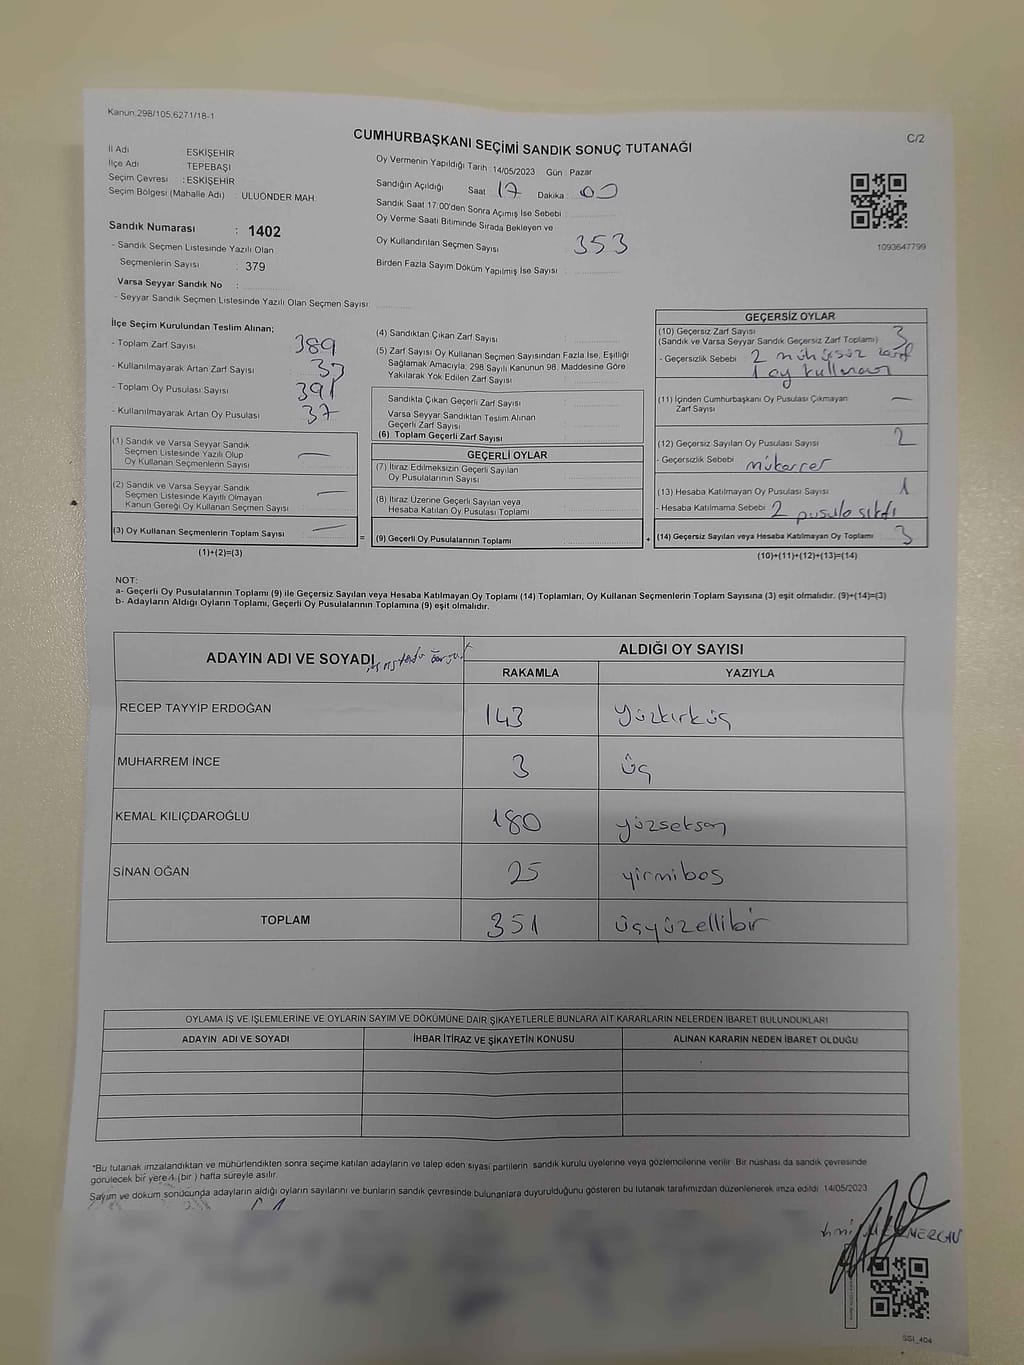 Kanun:298/105,6271/18-1
CUMHURBAŞKANI SEÇİMİ SANDIK SONUÇ TUTANAĞI
C/2
İl Adı ESKİŞEHİR
İlçe Adı TEPEBAŞI
Seçim Çevresi : ESKİŞEHİR
Seçim Bölgesi (Mahalle Adı) : ULUÖNDER MAH.
Sandık Numarası : 1402
- Sandık Seçmen Listesinde Yazılı Olan
Seçmenlerin Sayısı : 379
Varsa Seyyar Sandık No :
- Seyyar Sandık Seçmen Listesinde Yazılı Olan Seçmen Sayısı:
Oy Vermenin Yapıldığı Tarih :14/05/2023 Gün : Pazar
Sandığın Açıldığı Saat 17 Dakika : 00
Sandık Saat 17:00'den Sonra Açımış İse Sebebi :
Oy Verme Saati Bitiminde Sırada Bekleyen ve
Oy Kullandırılan Seçmen Sayısı : 353
Birden Fazla Sayım Döküm Yapılmış İse Sayısı :
1093647799
İlçe Seçim Kurulundan Teslim Alınan;
- Toplam Zarf Sayısı : 389
- Kullanılmayarak Artan Zarf Sayısı :
- Toplam Oy Pusulası Sayısı : 391
- Kullanılmayarak Artan Oy Pusulası : 37
(1) Sandık ve Varsa Seyyar Sandık
Seçmen Listesinde Yazılı Olup
Oy Kullanan Seçmenlerin Sayısı : —
(2) Sandık ve Varsa Seyyar Sandık
Seçmen Listesinde Kayıtlı Olmayan
Kanun Gereği Oy Kullanan Seçmen Sayısı : —
(3) Oy Kullanan Seçmenlerin Toplam Sayısı : —
(1)+(2)=(3)
=
(4) Sandıktan Çıkan Zarf Sayısı :
(5) Zarf Sayısı Oy Kullanan Seçmen Sayısından Fazla İse, Eşitliği
Sağlamak Amacıyla, 298 Sayılı Kanunun 98. Maddesine Göre
Yakılarak Yok Edilen Zarf Sayısı :
Sandıkta Çıkan Geçerli Zarf Sayısı :
Varsa Seyyar Sandıktan Teslim Alınan
Geçerli Zarf Sayısı :
(6) Toplam Geçerli Zarf Sayısı :
GEÇERLİ OYLAR
(7) İtiraz Edilmeksizin Geçerli Sayılan
Oy Pusulalarının Sayısı :
(8) İtiraz Üzerine Geçerli Sayılan veya
Hesaba Katılan Oy Pusulası Toplamı :
(9) Geçerli Oy Pusulalarının Toplamı :
+
GEÇERSİZ OYLAR
(10) Geçersiz Zarf Sayısı 3
(Sandık ve Varsa Seyyar Sandık Geçersiz Zarf Toplamı)
- Geçersizlik Sebebi : 2 mühürsüz zarf
1 oy kullanan
(11) İçinden Cumhurbaşkanı Oy Pusulası Çıkmayan
Zarf Sayısı : —
(12) Geçersiz Sayılan Oy Pusulası Sayısı : 2
- Geçersizlik Sebebi : mükerrer
(13) Hesaba Katılmayan Oy Pusulası Sayısı : 1
- Hesaba Katılmama Sebebi : 2 pusula
(14) Geçersiz Sayılan veya Hesaba Katılmayan Oy Toplamı : 3
(10)+(11)+(12)+(13)=(14)
NOT:
a- Geçerli Oy Pusulalarının Toplamı (9) ile Geçersiz Sayılan veya Hesaba Katılmayan Oy Toplamı (14) Toplamları, Oy Kullanan Seçmenlerin Toplam Sayısına (3) eşit olmalıdır. (9)+(14)=(3)
b- Adayların Aldığı Oyların Toplamı, Geçerli Oy Pusulalarının Toplamına (9) eşit olmalıdır.
ADAYIN ADI VE SOYADI
ALDIĞI OY SAYISI
RAKAMLA YAZIYLA
RECEP TAYYİP ERDOĞAN 143 Yüzkırküç
MUHARREM İNCE 3 üç
KEMAL KILIÇDAROĞLU 180 yüzseksan
SİNAN OĞAN 25 yirmibeş
TOPLAM 351 üçyüzellibir
OYLAMA İŞ VE İŞLEMLERİNE VE OYLARIN SAYIM VE DÖKÜMÜNE DAİR ŞİKAYETLERLE BUNLARA AİT KARARLARIN NELERDEN İBARET BULUNDUKLARI
ADAYIN ADI VE SOYADI İHBAR İTİRAZ VE ŞİKAYETİN KONUSU ALINAN KARARIN NEDEN İBARET OLDUĞU
*Bu tutanak imzalandıktan ve mühürlendikten sonra seçime katılan adayların ve talep eden siyasi partilerin sandık kurulu üyelerine veya gözlemcilerine verilir. Bir nüshası da sandık çevresinde
görülecek bir yere 1 (bir) hafta süreyle asılır.
Sayım ve döküm sonucunda adayların aldığı oyların sayılarını ve bunların sandık çevresinde bulunanlara duyurulduğunu gösteren bu tutanak tarafımızdan düzenlenerek imza edildi. 14/05/2023
SSI_404